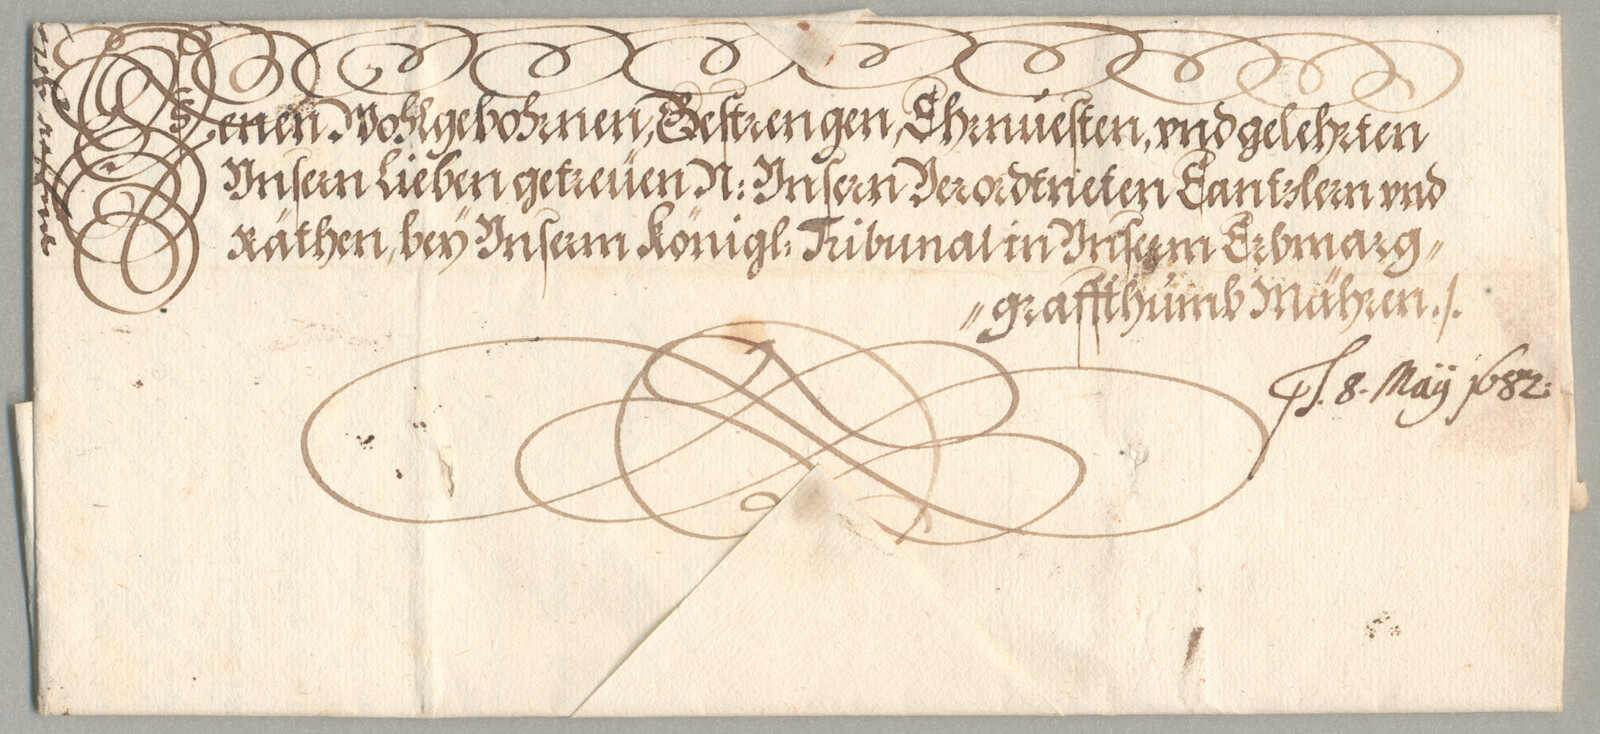 Denen Wohlgebohrnen, Gestrengen, Ehrnuesten, vnd gelehrten
Vnsern Lieben getreüen N: Vnsern Verordtneten Cantzlern vnd
Räthen, beÿ Vnserm Königl: Tribunal in Vnserm Erbmarg〃
〃graffthumb Mähren ./.
Ps. 8. Maÿ 1682: